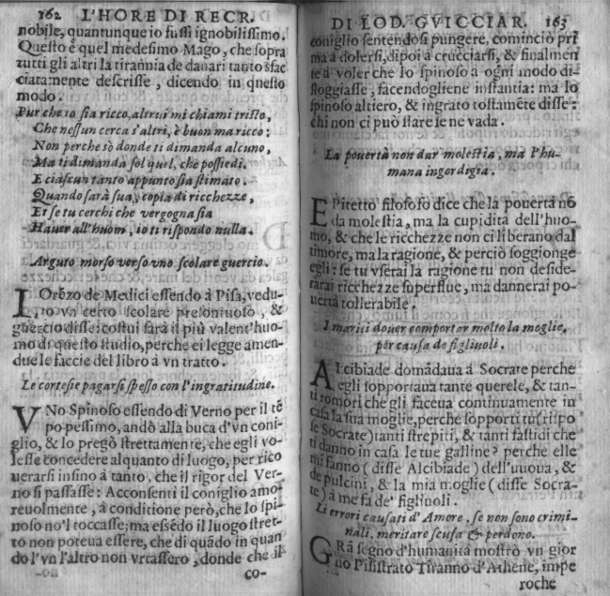 162 L'HORE DI RECR.
nobile, quantunque io fussi ignobilissimo.
Questo è quel medesimo Mago, che sopra
tutti gli altri la tirannia de danari tanto sfac
ciatamente descrisse, dicendo in questo
modo.
Pur che io sia ricco, altrui mi chiami tristo,
Che nessun cerca s'altri, è buon ma ricco:
Non perche sò donde ti dimanda alcuno,
Ma ti dimanda sol quel, che possiedi.
E ciascun tanto appunto sia stimato.
Quando sarà sua, copia di ricchezze,
Et se tu cerchi che vergogna sia
Hauer all'huom, io ti rispondo nulla.
Arguto morso verso vno scolare guercio.
LOrẽzo de Medici essendo à Pisa, vedu-
to vn certo scolare presontuoso, &
guercio disse: costui sarà il più valent'huo
mo di questo studio, perche ei legge amen-
due le faccie del libro à vn tratto.
Le cortesie pagarsi spesso con l'ingratitudine.
VNo Spinoso essendo di Verno per il tẽ
po pessimo, andò alla buca d'vn coni-
glio, & lo pregò strettamente, che egli vo-
lesse concedere alquanto di luogo, per rico
uerarsi insino à tanto, che il rigor del Ver-
no si passasse: Acconsentì il coniglio amo-
reuolmente, à conditione però, che lo spi-
noso no'l toccasse; ma essẽdo il luogo stret-
to non poteua essere, che di quãdo in quan
do l'vn l'altro non vrtassero, donde che il
co-
DI LOD. GVICCIAR. 163
coniglio sentendosi pungere, cominciò pri
ma à dolersi, dipoi à crucciarsi, & finalmen
te à voler che lo spinoso à ogni modo di-
sloggiasse, facendogliene instantia: ma lo
spinoso altiero, & ingrato tostamẽte disse:
chi non ci può stare se ne vada.
La pouertà non dar molestia, ma l'hu-
mana ingordigia.
EPitetto filosofo dice che la pouertà nõ
da molestia, ma la cupidità dell'huo-
mo, & che le ricchezze non ci liberano dal
timore, ma la ragione, & perciò soggionge
egli: se tu vserai la ragione tu non deside-
rarai ricchezze superflue, ma dannerai po
uertà tollerabile.
I mariti douer comportar molto la moglie,
per causa de figliuoli.
ALcibiade domãdaua à Socrate perche
egli sopportaua tante querele, & tan-
ti romori che gli faceua continuamente in
casa la sua moglie, perche sopporti tu (rispo
se Socrate) tanti strepiti, & tanti fastidi che
ti danno in casa le tue galline? perche elle
mi fanno (disse Alcibiade) dell'vuoua, &
de pulcini, & la mia moglie (disse Socra-
te) à me fa de' figliuoli.
Li errori causati d'Amore, se non sono crimi-
nali, meritare scusa & perdono.
GRã segno d'humanità mostrò vn gior
no Pisistrato Tiranno d'Athene, impe
roche